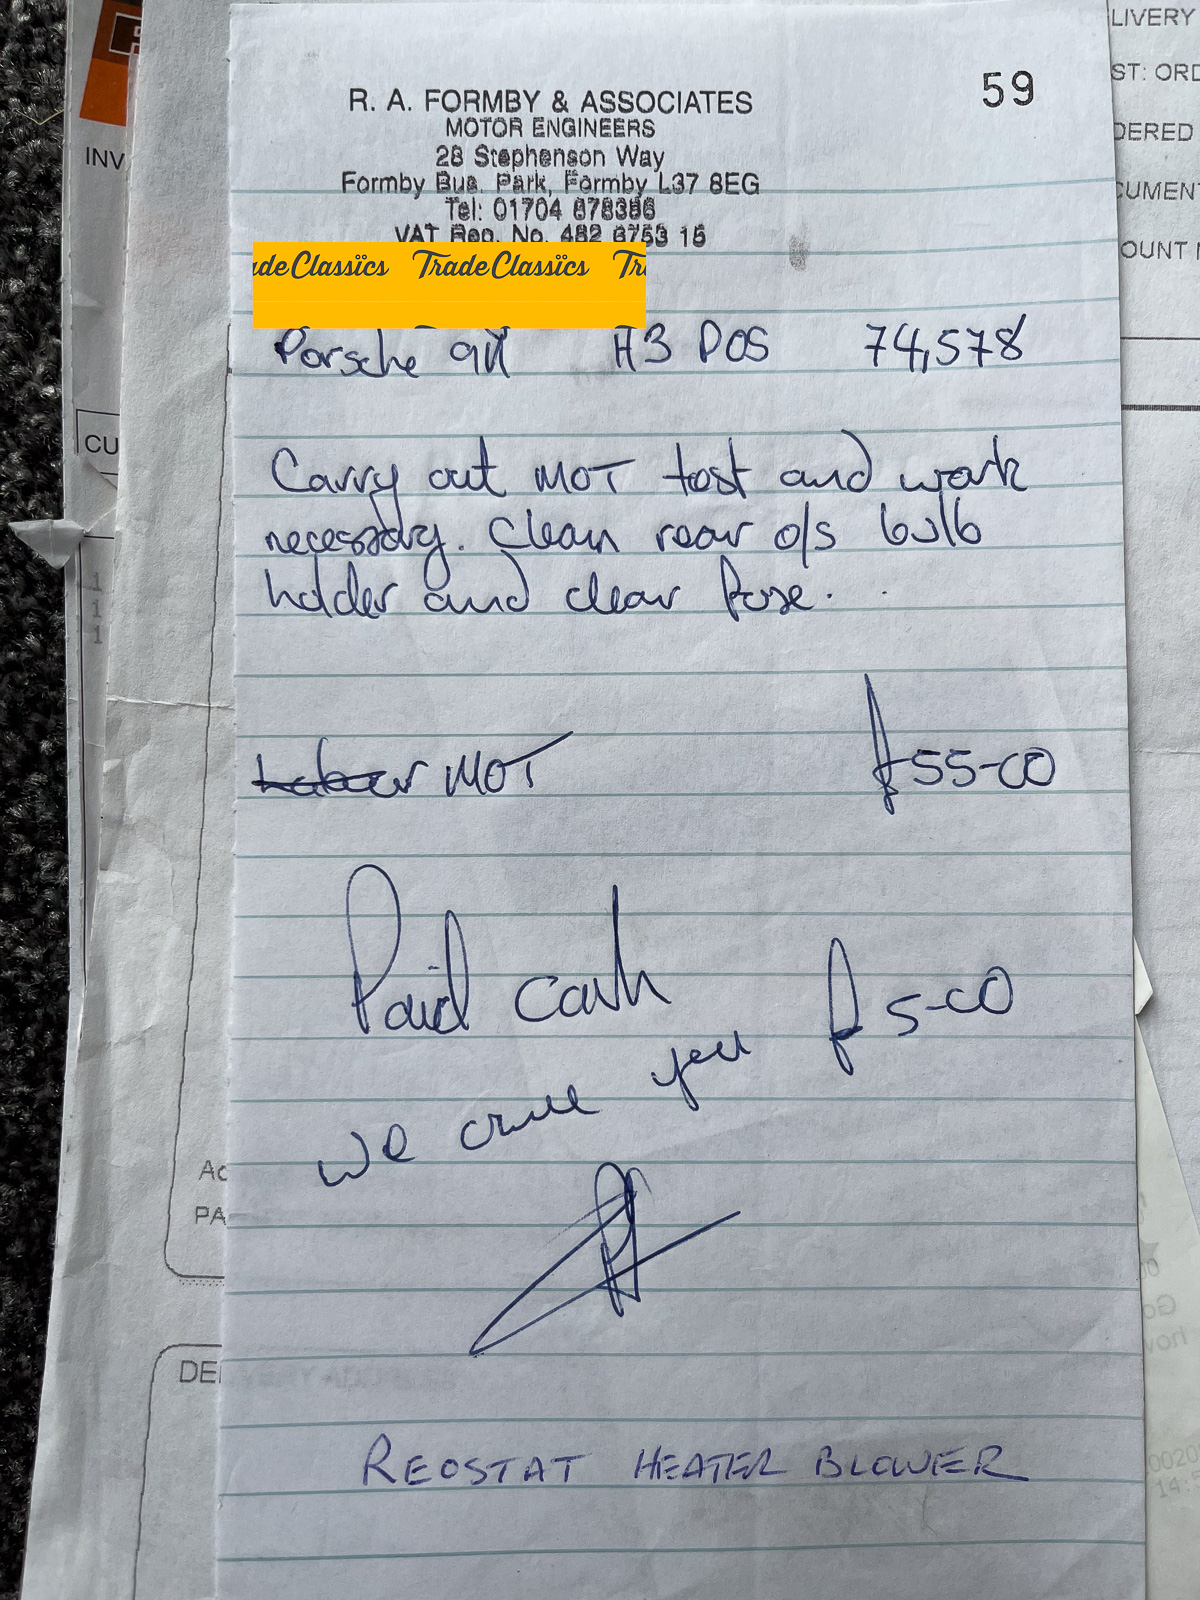 59
R. A. FORMBY & ASSOCIATES
MOTOR ENGINEERS
28 Stephenson Way
Formby Bus. Park, Formby L37 8EG
Tel: 01704 878386
VAT Reg. No. 482 6753 15
adeClassics TradeClassics Tr
Porsche 911 H3 POS 74,578
Carry out MOT test and work
necessary. Clean rear o/s bulb
holder and clear fuse.
MOT £55-00
Paid cash
we owe you £5-00
REOSTAT HEATER BLOWER
LIVERY
ST: ORD
DERED
CUMENT
OUNT
INV
CU
1
1
1
Ac
PA
DE